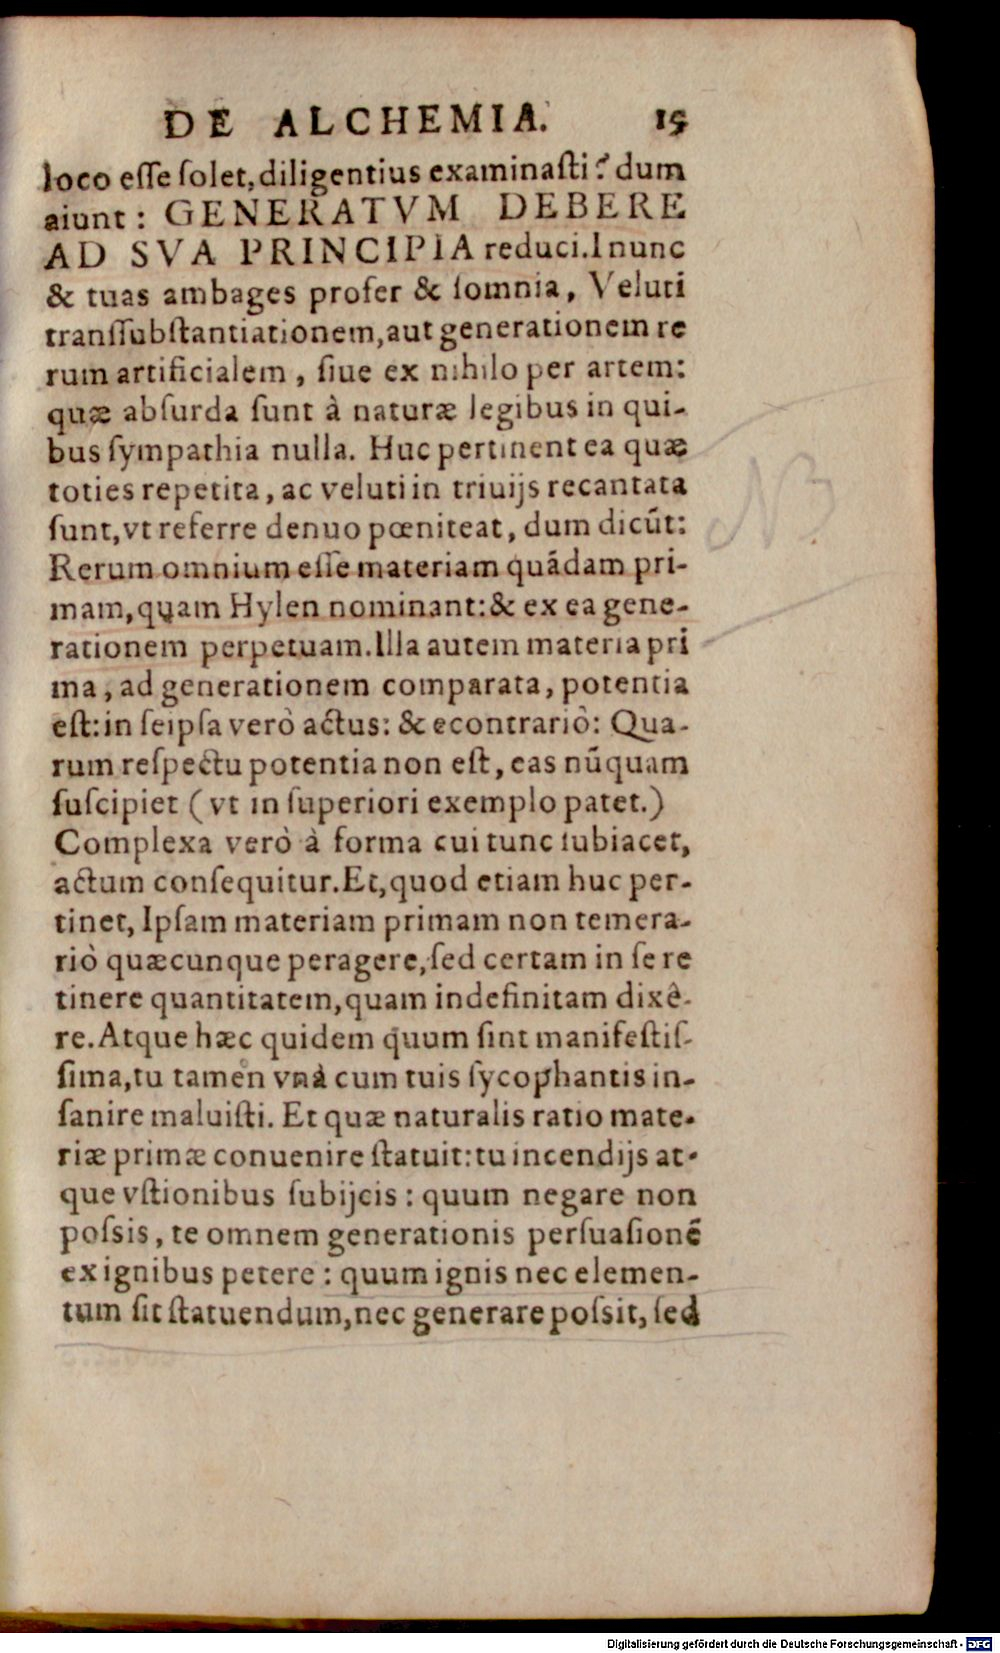 DE ALCHEMIA. 15
loco eſſe ſolet, diligentius examinaſti? dum
aiunt: GENERATVM DEBERE
AD SVA PRINCIPIA reduci. I nunc
& tuas ambages profer & ſomnia, Veluti
tranſſubſtantiationem, aut generationem re
rum artificialem, ſiue ex nihilo per artem:
quæ abſurda ſunt à naturæ legibus in qui-
bus ſympathia nulla. Huc pertinent ea quæ
toties repetita, ac veluti in triuijs recantata
ſunt, vt referre denuo pœniteat, dum dicūt:
Rerum omnium eſſe materiam quādam pri-
mam, quam Hylen nominant: & ex ea gene-
rationem perpetuam. Illa autem materia pri
ma, ad generationem comparata, potentia
eſt: in ſeipſa verò actus: & econtrariò: Qua-
rum reſpectu potentia non eſt, eas nūquam
ſuſcipiet (vt in ſuperiori exemplo patet.)
Complexa verò à forma cui tunc ſubiacet,
actum conſequitur. Et, quod etiam huc per-
tinet, Ipſam materiam primam non temera-
riò quæcunque peragere, ſed certam in ſe re
tinere quantitatem, quam indefinitam dixê-
re. Atque hæc quidem quum ſint manifeſtiſ-
ſima, tu tamen vnà cum tuis ſycophantis in-
ſanire maluiſti. Et quæ naturalis ratio mate-
riæ primæ conuenire ſtatuit: tu incendijs at-
que vſtionibus ſubijcis: quum negare non
poſsis, te omnem generationis perſuaſionē
ex ignibus petere: quum ignis nec elemen-
tum ſit ſtatuendum, nec generare poſsit, ſed
NB
Digitalisierung gefördert durch die Deutsche Forschungsgemeinschaft - DFG